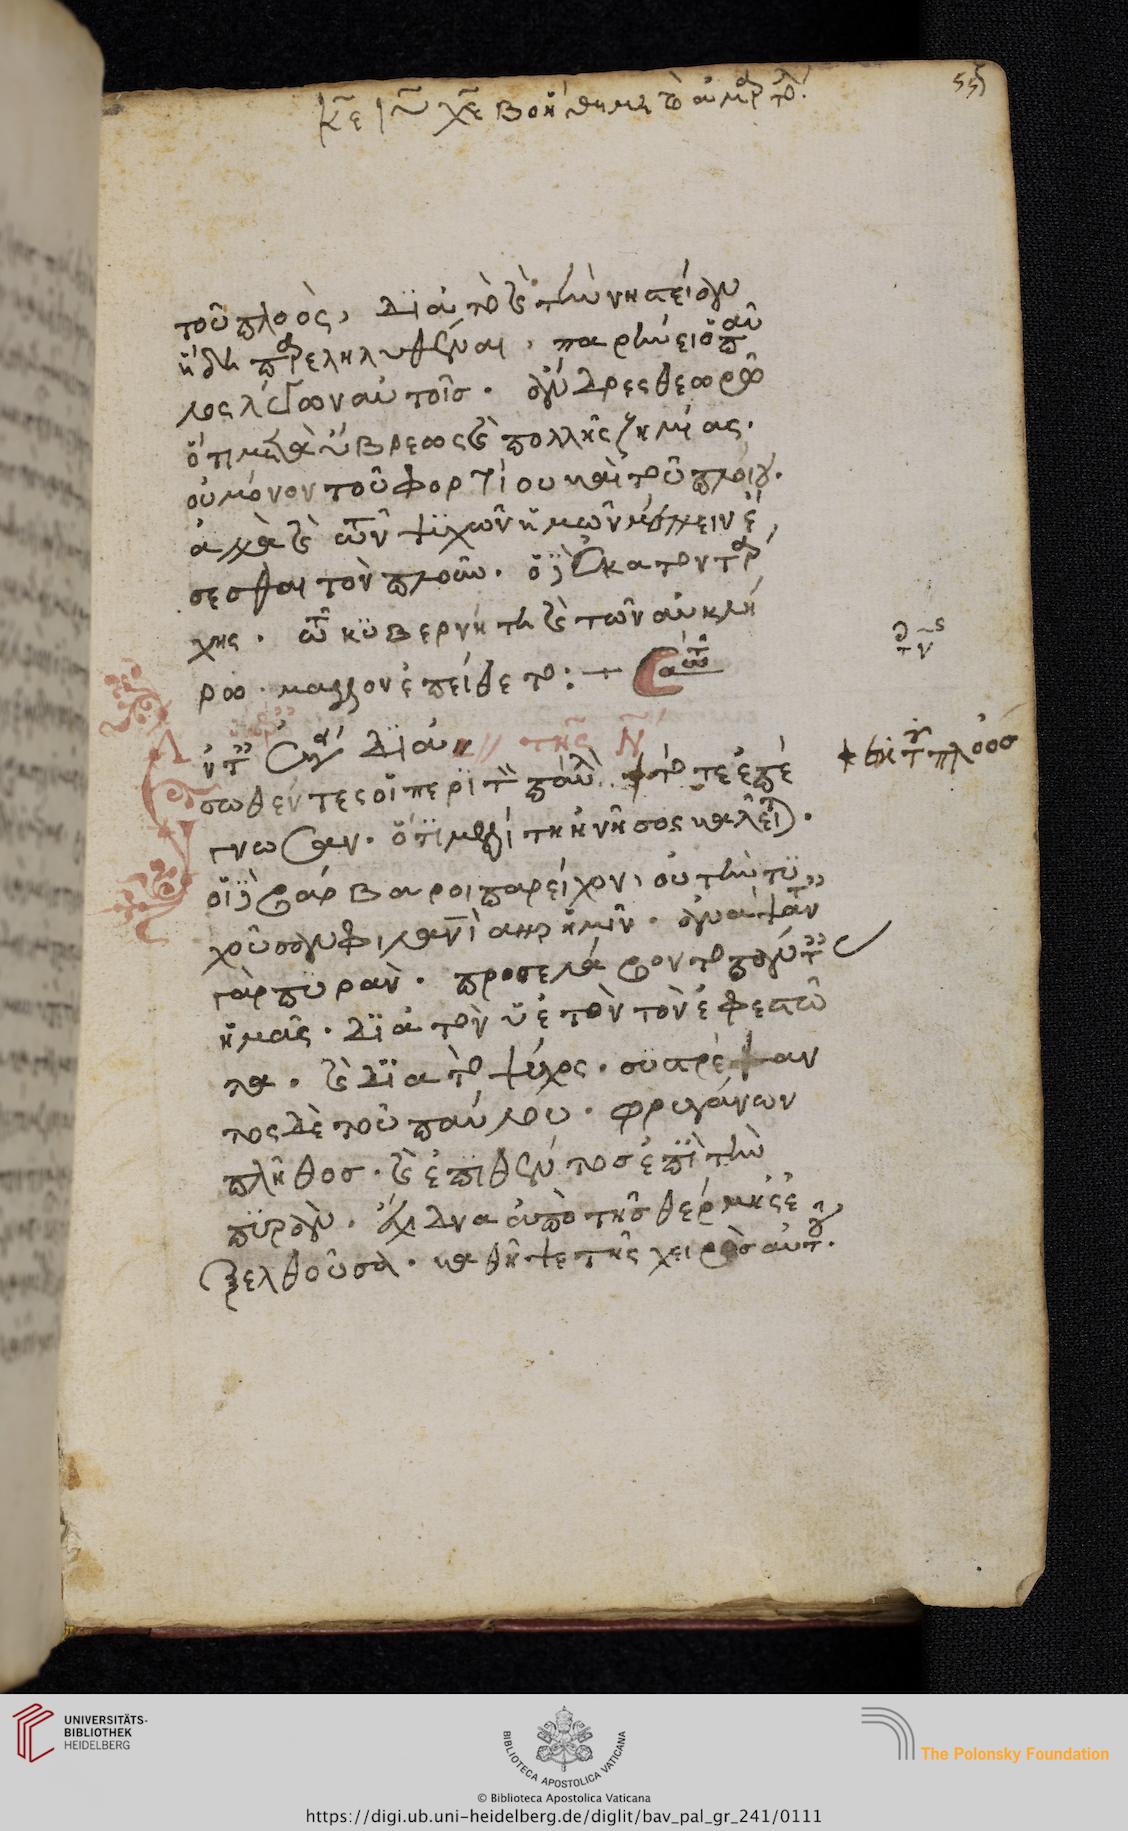 κ̅ε ι̅υ χ̅ε βοήθη μοι τῶ ἁμαρτωλῶ
55
τοῦ πλοὸς, διὰ τὸ καὶ τὴν νηστείαν
ἤδη παρεληλυθέναι, παρήνει ὁ παῦ
λος λέγων αὐτοῖς. ἄνδρες θεωρῶ
ὅτι μετὰ ὕβρεως καὶ πολλῆς ζημίας.
οὐ μόνον τοῦ φορτίου καὶ τοῦ πλοίου.
ἀλλὰ καὶ τῶν ψϋχῶν ἡμῶν μέλλειν ἔ
σεσθαι τὸν πλοῦν. ὁ δὲ ἑκατοντάρ
χης. τῶ κϋβερνήτη καὶ τῶ ναυκλή
ρω. μαλλον ἐπείθετο:+
τῆς
διασωθέντες οἱ περὶ τὸν παῦλον τότε ἐπέ
γνωσαν. ὅτι μελίτη ἡ νῆσος καλεῖται.
οἱ δὲ βάρβαροι παρεῖχον, οὐ τὴν τϋ
χοῦσαν φιλανθρωπίαν ἡμῖν. ἀνάψαντες
γὰρ πϋρὰν. προσελάβοντο πάντας
ἡμᾶς. διὰ τὸν ὑετὸν τὸν ἐφεστῶ
τα. καὶ διὰ τὸ ψύχος. συστρέψαν
τος δὲ τοῦ παύλου. φρυγάνων
πλῆθος. καὶ ἐπιθέντος ἐπὶ τὴν
πϋρὰν. ἔχιδνα ἀπὸ τῆς θέρμης ἐ
ξελθοῦσα. καθῆψε τῆς χειρὸς αὐτοῦ.
UNIVERSITÄTS-
BIBLIOTHEK
HEIDELBERG
BIBLIOTECA APOSTOLICA VATICANA
The Polonsky Foundation
© Biblioteca Apostolica Vaticana
https://digi.ub.uni-heidelberg.de/diglit/bav_pal_gr_241/0111